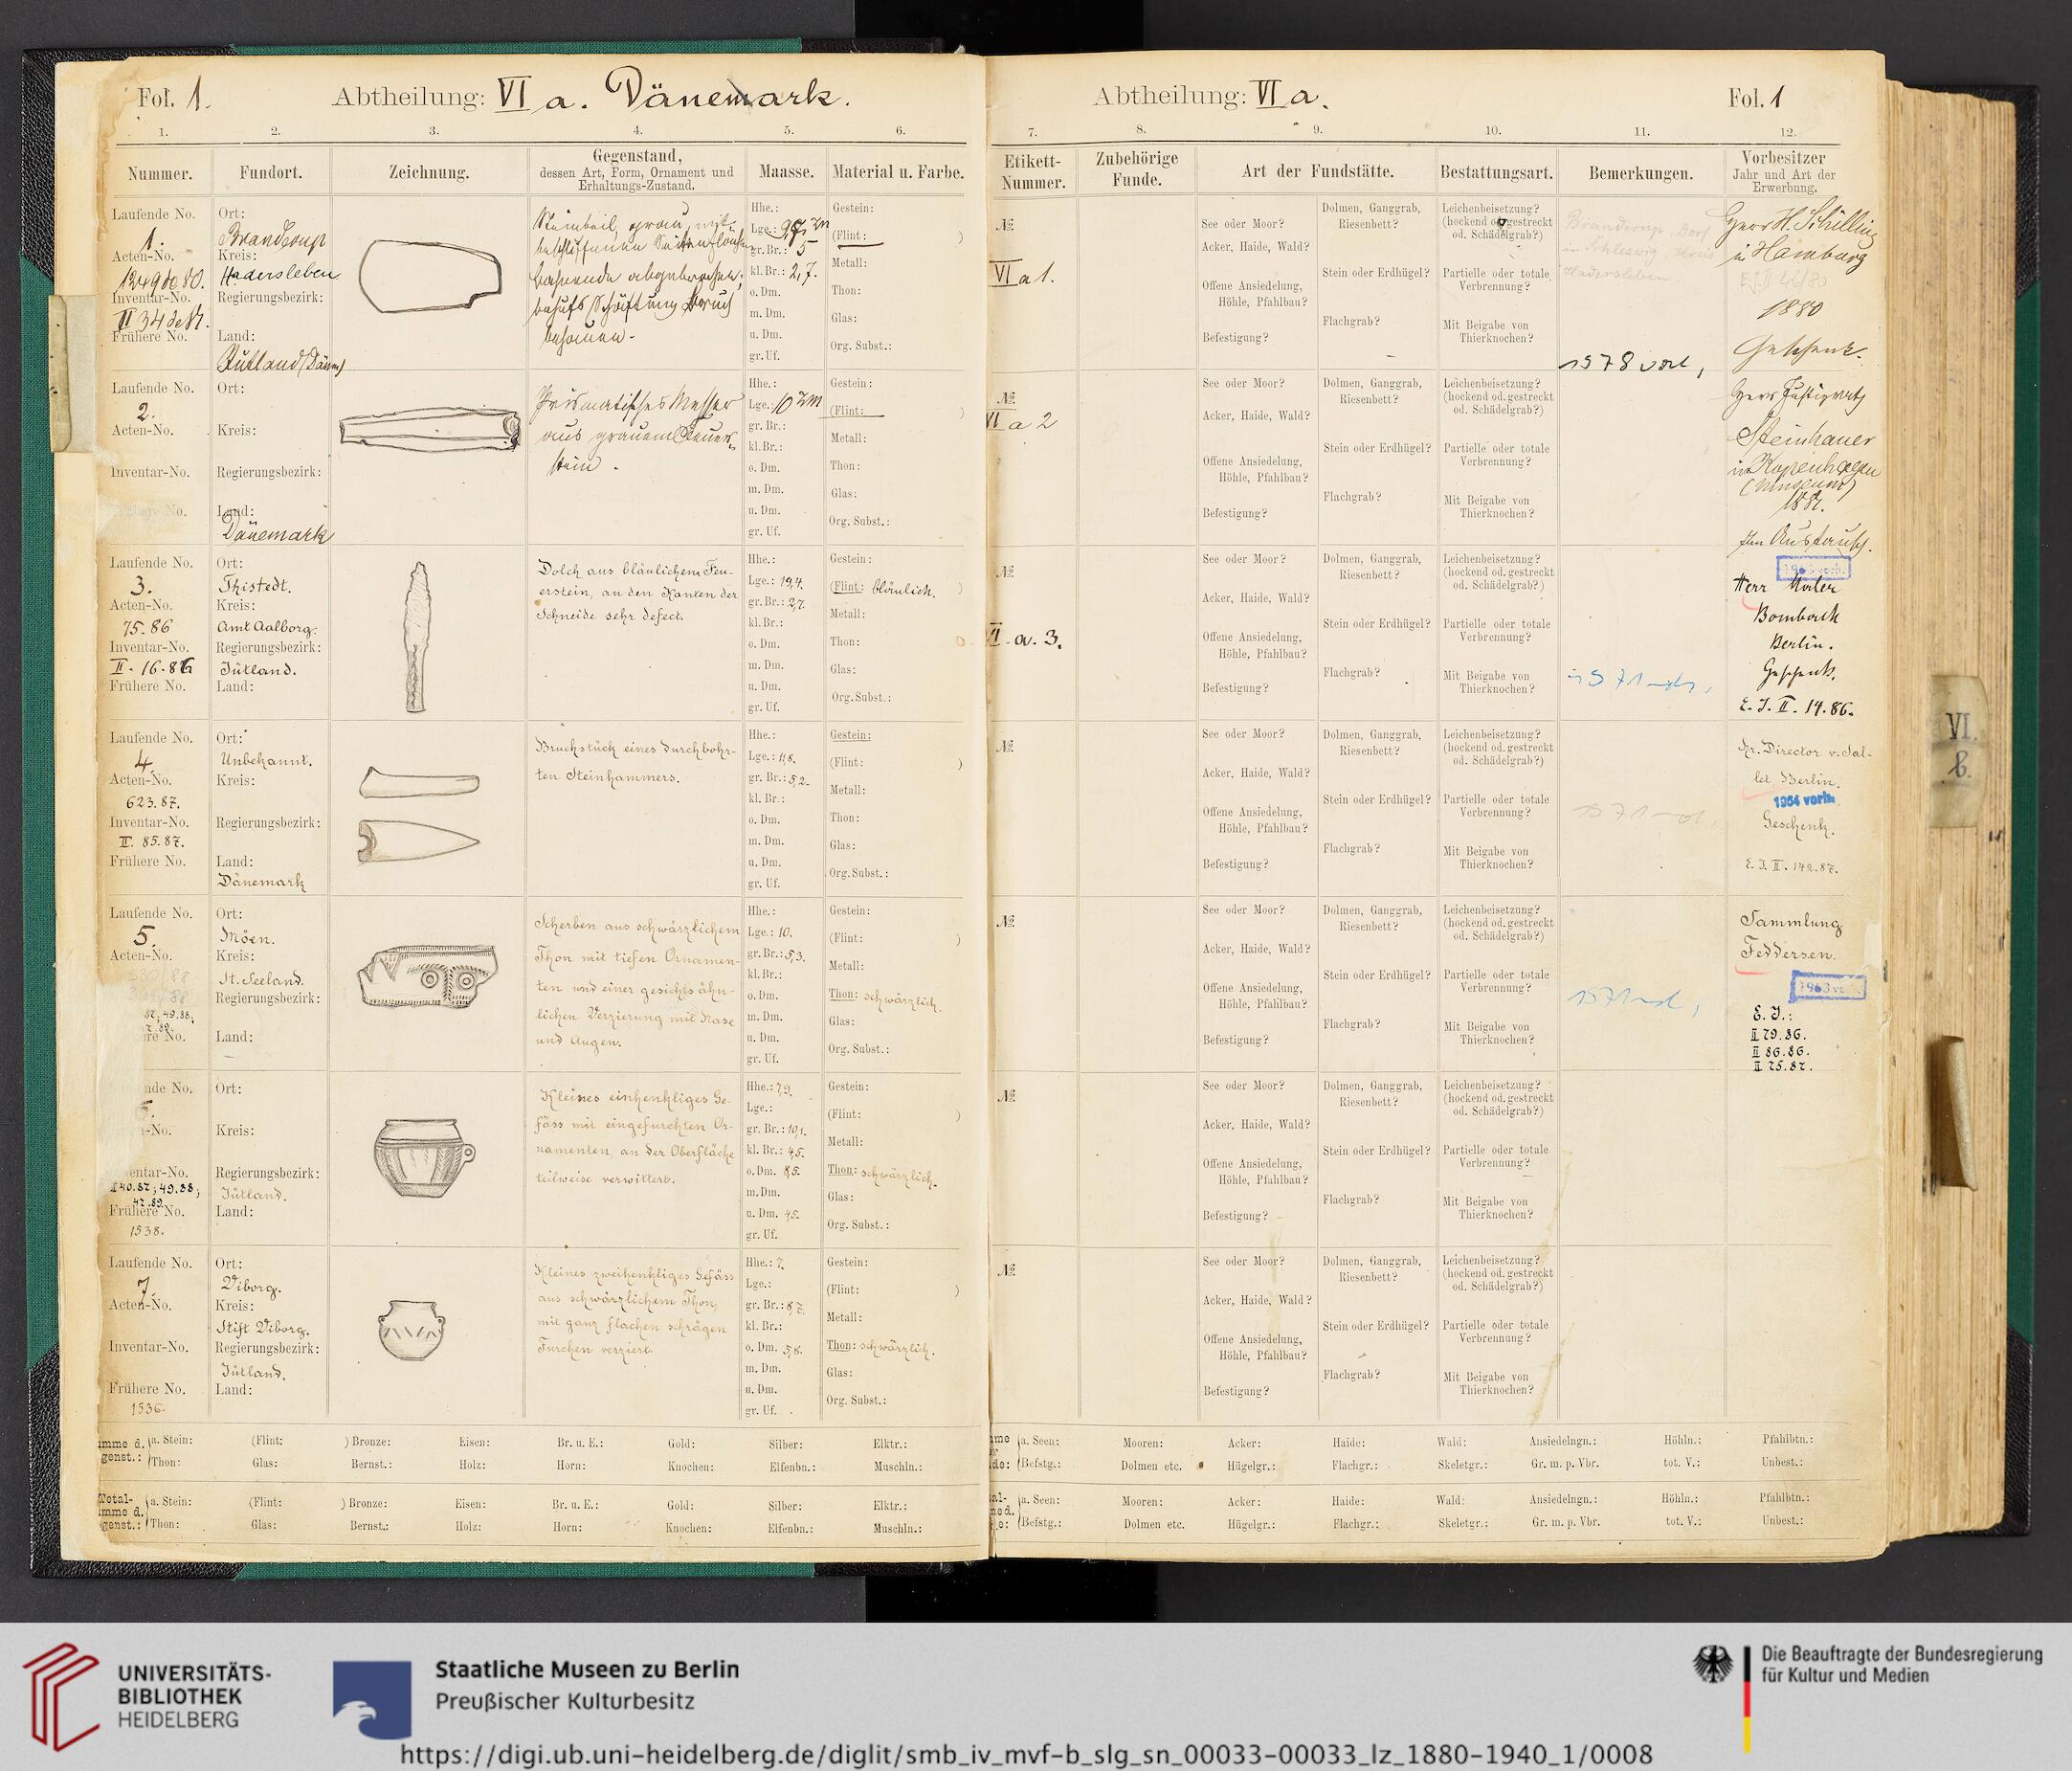 Fol. 1.
Abtheilung: VI a. Dänemark.
1. 2. 3. 4. 5. 6.
Nummer.
Fundort.
Zeichnung.
Gegenstand,
dessen Art, Form, Ornament und
Erhaltungs-Zustand.
Maasse.
Material u. Farbe.
Laufende No.
1.
Acten-No.
1249 de 80.
Inventar-No.
II 34 de 81.
Frühere No.
Ort:
Branderup
Kreis:
Hadersleben
Regierungsbezirk:
Land:
Jütland (Dänm)
Steinbeil, grau, mit
behauen.
Hhe.:
Lge.: 9,7 zm
gr. Br.: 5
kl. Br.: 2,7.
o. Dm.
m. Dm.
u. Dm.
gr. Uf.
Gestein:
(Flint: )
Metall:
Thon:
Glas:
Org. Subst.:
Laufende No.
2.
Acten-No.
Inventar-No.
Ort:
Kreis:
Regierungsbezirk:
Land:
Dänemark
Prismatisches Messer
aus grauem Feuer-
stein.
Hhe.:
Lge.: 10 zm
gr. Br.:
kl. Br.:
o. Dm.
m. Dm.
u. Dm.
gr. Uf.
Gestein:
(Flint: )
Metall:
Thon:
Glas:
Org. Subst.:
Laufende No.
3.
Acten-No.
75. 86
Inventar-No.
II. 16. 86
Frühere No.
Ort:
Thistedt.
Kreis:
Amt Aalborg.
Regierungsbezirk:
Jütland.
Land:
Dolch aus bläulichem Feu-
erstein, an den Kanten der
Schneide sehr defect.
Hhe.:
Lge.: 19,4.
gr. Br.: 2,7.
kl. Br.:
o. Dm.
m. Dm.
u. Dm.
gr. Uf.
Gestein:
(Flint: bläulich. )
Metall:
Thon:
Glas:
Org. Subst.:
Laufende No.
4.
Acten-No.
623. 87.
Inventar-No.
II. 85. 87.
Frühere No.
Ort:
Unbekannt.
Kreis:
Regierungsbezirk:
Land:
Dänemark
Bruchstück eines durchbohr-
ten Steinhammers.
Hhe.:
Lge.: 11,8.
gr. Br.: 5,2.
kl. Br.:
o. Dm.
m. Dm.
u. Dm.
gr. Uf.
Gestein:
(Flint: )
Metall:
Thon:
Glas:
Org. Subst.:
Laufende No.
5.
Acten-No.
Ort:
Möen.
Kreis:
St. Seeland.
Regierungsbezirk:
Land:
Scherben aus schwärzlichem
Thon mit tiefen Ornamen-
ten und einer gesichtsähn-
lichen Verzierung mit Nase
und Augen.
Hhe.:
Lge.: 10.
gr. Br.: 5,3.
kl. Br.:
o. Dm.
m. Dm.
u. Dm.
gr. Uf.
Gestein:
(Flint: )
Metall:
Thon: schwärzlich.
Glas:
Org. Subst.:
40.87; 49.88;
47.89.
Frühere No.
1538.
Ort:
Kreis:
Regierungsbezirk:
Jütland.
Land:
Kleines einhenkliges Ge-
fäss mit eingefurchten Or-
namenten, an der Oberfläche
teilweise verwittert.
Hhe.: 7,9.
Lge.:
gr. Br.: 10,1.
kl. Br.: 4,5.
o. Dm. 8,5.
m. Dm.
u. Dm. 4,5.
gr. Uf.
Gestein:
(Flint: )
Metall:
Thon: schwärzlich.
Glas:
Org. Subst.:
Laufende No.
7.
Acten-No.
Inventar-No.
Frühere No.
1536.
Ort:
Viborg.
Kreis:
Stift Viborg.
Regierungsbezirk:
Jütland.
Land:
Kleines zweihenkliges Gefäss
aus schwärzlichem Thon,
mit ganz flachen schrägen
Furchen verziert.
Hhe.: 7.
Lge.:
gr. Br.: 8,7.
kl. Br.:
o. Dm. 5,8.
m. Dm.
u. Dm.
gr. Uf.
Gestein:
(Flint: )
Metall:
Thon: schwärzlich.
Glas:
Org. Subst.:
a. Stein: (Flint: ) Bronze: Eisen: Br. u. E.: Gold: Silber: Elktr.:
Thon: Glas: Bernst.: Holz: Horn: Knochen: Elfenbn.: Muschln.:
a. Stein: (Flint: ) Bronze: Eisen: Br. u. E.: Gold: Silber: Elktr.:
Thon: Glas: Bernst.: Holz: Horn: Knochen: Elfenbn.: Muschln.:
Abtheilung: VI a.
Fol. 1
7. 8. 9. 10. 11. 12.
Etikett-
Nummer.
Zubehörige
Funde.
Art der Fundstätte.
Bestattungsart.
Bemerkungen.
Vorbesitzer
Jahr und Art der
Erwerbung.
№
VI a 1.
See oder Moor?
Acker, Haide, Wald?
Offene Ansiedelung,
Höhle, Pfahlbau?
Befestigung?
Dolmen, Ganggrab,
Riesenbett?
Stein oder Erdhügel?
Flachgrab?
Leichenbeisetzung?
(hockend od. gestreckt
od. Schädelgrab?)
Partielle oder totale
Verbrennung?
Mit Beigabe von
Thierknochen?
Branderup, Dorf
in Schleswig, Kreis
Hadersleben.
1978 vorh.
Herr H. Schilling
in Hamburg
1880
Geschenk.
№
VI a 2
See oder Moor?
Acker, Haide, Wald?
Offene Ansiedelung,
Höhle, Pfahlbau?
Befestigung?
Dolmen, Ganggrab,
Riesenbett?
Stein oder Erdhügel?
Flachgrab?
Leichenbeisetzung?
(hockend od. gestreckt
od. Schädelgrab?)
Partielle oder totale
Verbrennung?
Mit Beigabe von
Thierknochen?
Herr Justizrath
Steinhauer
in Kopenhagen
(Museum)
1881.
Im Austausch.
№
VI. a. 3.
See oder Moor?
Acker, Haide, Wald?
Offene Ansiedelung,
Höhle, Pfahlbau?
Befestigung?
Dolmen, Ganggrab,
Riesenbett?
Stein oder Erdhügel?
Flachgrab?
Leichenbeisetzung?
(hockend od. gestreckt
od. Schädelgrab?)
Partielle oder totale
Verbrennung?
Mit Beigabe von
Thierknochen?
1963 vorh.
Herr Maler
Bombach
Berlin.
Geschenk.
E. J. II. 14. 86.
№
See oder Moor?
Acker, Haide, Wald?
Offene Ansiedelung,
Höhle, Pfahlbau?
Befestigung?
Dolmen, Ganggrab,
Riesenbett?
Stein oder Erdhügel?
Flachgrab?
Leichenbeisetzung?
(hockend od. gestreckt
od. Schädelgrab?)
Partielle oder totale
Verbrennung?
Mit Beigabe von
Thierknochen?
Hr. Director v. Sal-
let Berlin.
1964 vorh.
Geschenk.
E. J. II. 142. 87.
№
See oder Moor?
Acker, Haide, Wald?
Offene Ansiedelung,
Höhle, Pfahlbau?
Befestigung?
Dolmen, Ganggrab,
Riesenbett?
Stein oder Erdhügel?
Flachgrab?
Leichenbeisetzung?
(hockend od. gestreckt
od. Schädelgrab?)
Partielle oder totale
Verbrennung?
Mit Beigabe von
Thierknochen?
Sammlung
Feddersen.
1963 vorh.
E. J.:
II 79. 86.
II 86. 86.
II 25. 87.
№
See oder Moor?
Acker, Haide, Wald?
Offene Ansiedelung,
Höhle, Pfahlbau?
Befestigung?
Dolmen, Ganggrab,
Riesenbett?
Stein oder Erdhügel?
Flachgrab?
Leichenbeisetzung?
(hockend od. gestreckt
od. Schädelgrab?)
Partielle oder totale
Verbrennung?
Mit Beigabe von
Thierknochen?
№
See oder Moor?
Acker, Haide, Wald?
Offene Ansiedelung,
Höhle, Pfahlbau?
Befestigung?
Dolmen, Ganggrab,
Riesenbett?
Stein oder Erdhügel?
Flachgrab?
Leichenbeisetzung?
(hockend od. gestreckt
od. Schädelgrab?)
Partielle oder totale
Verbrennung?
Mit Beigabe von
Thierknochen?
a. Seen: Mooren: Acker: Haide: Wald: Ansiedelngn.: Höhln.: Pfahlbtn.:
Befstg.: Dolmen etc. Hügelgr.: Flachgr.: Skeletgr.: Gr. m. p. Vbr. tot. V.: Unbest.:
a. Seen: Mooren: Acker: Haide: Wald: Ansiedelngn.: Höhln.: Pfahlbtn.:
Befstg.: Dolmen etc. Hügelgr.: Flachgr.: Skeletgr.: Gr. m. p. Vbr. tot. V.: Unbest.:
VI.
b.
UNIVERSITÄTS-
BIBLIOTHEK
HEIDELBERG
Staatliche Museen zu Berlin
Preußischer Kulturbesitz
Die Beauftragte der Bundesregierung
für Kultur und Medien
https://digi.ub.uni-heidelberg.de/diglit/smb_iv_mvf-b_slg_sn_00033-00033_lz_1880-1940_1/0008